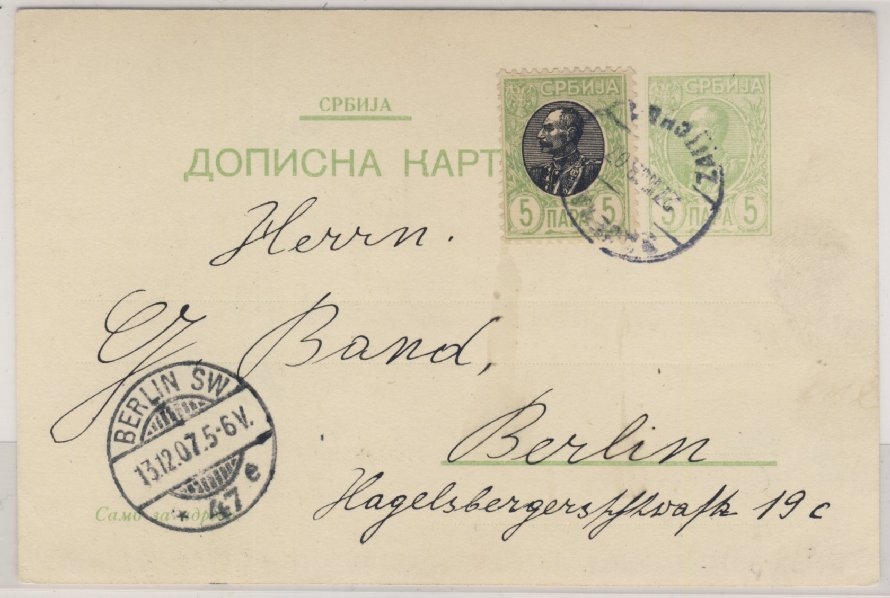 СРБИЈА
ДОПИСНА КАРТ
СРБИЈА
5 ПАРА 5
СРБИЈА
5 ПАРА 5
Herrn.
G. Band,
Berlin
Hagelsbergerstraße 19 c
BERLIN SW
13.12.07.5-6V.
* 47 e
Само за